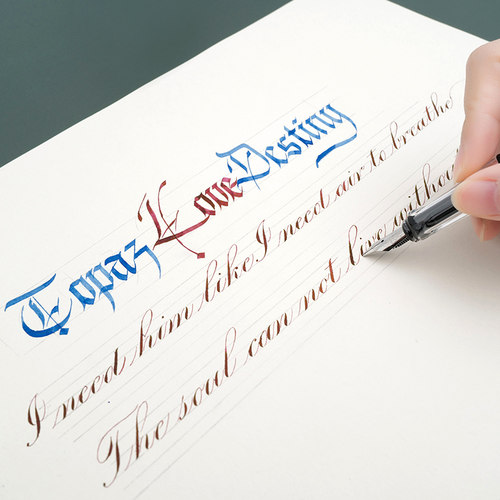 Topaz Love Destiny
I need him like I need air to breathe
The soul can not live without